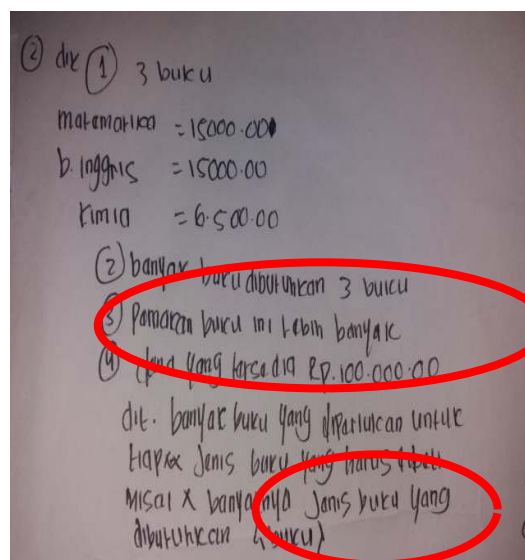 ② dik ① 3 buku
matematika = 15000.00
b. inggris = 15000.00
kimia = 6.500.00
② banyak buku dibutuhkan 3 buku
③ pamaran buku ini lebih banyak
④ dana yang tersedia Rp.100.000.00
dit. banyak buku yang diperlukan untuk
tiap jenis buku yang harus dibeli
misal x banyaknya jenis buku yang
dibutuhkan (buku)